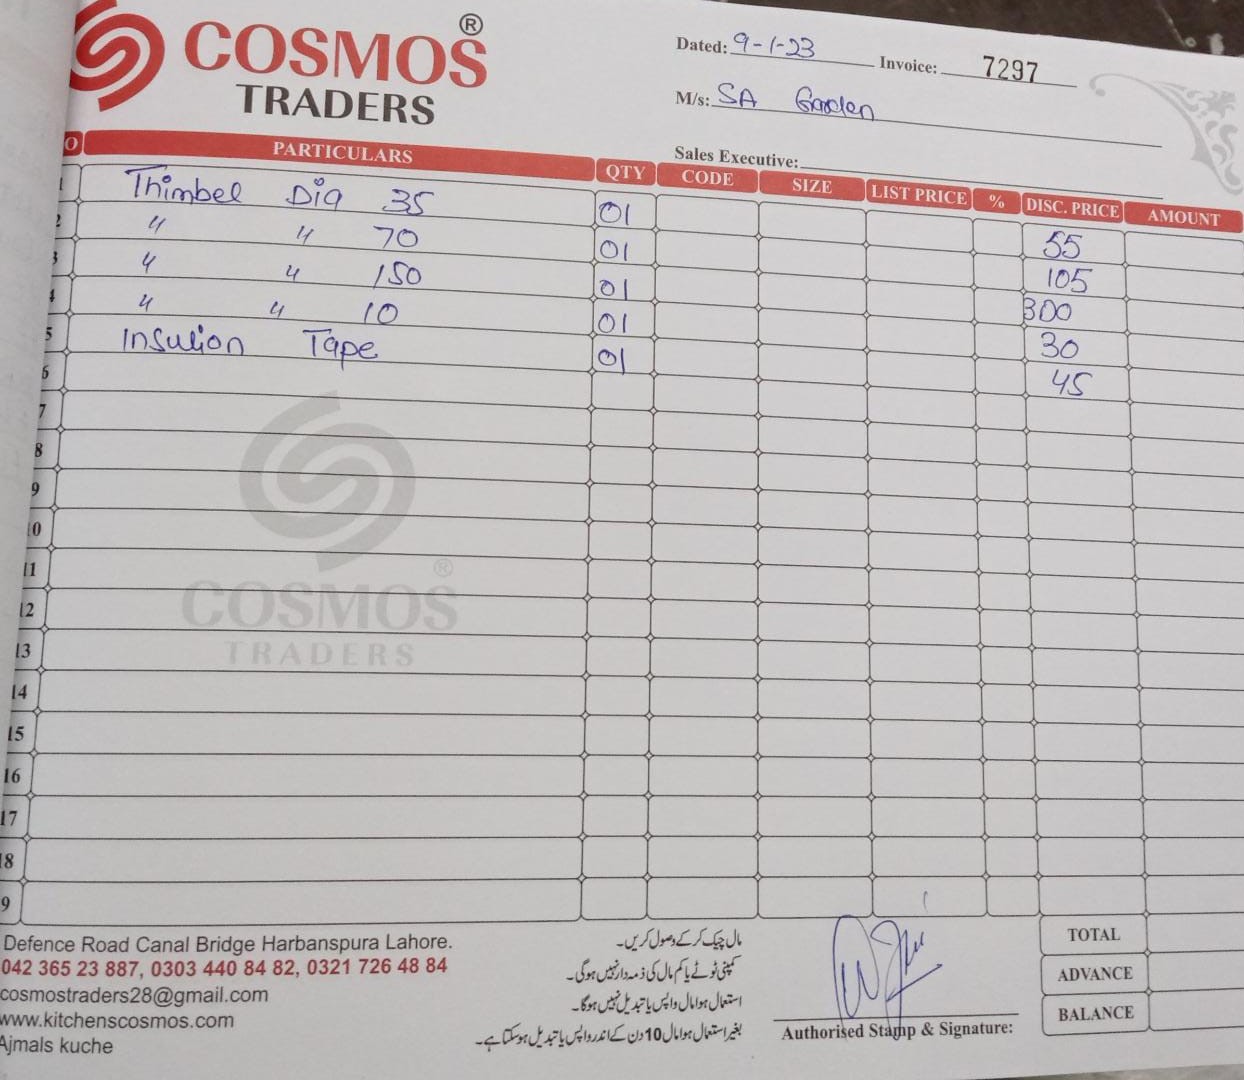 COSMOS ®
TRADERS
Dated: 9-1-23 Invoice: 7297
M/s: SA Garden
Sales Executive:
O PARTICULARS QTY CODE SIZE LIST PRICE % DISC. PRICE AMOUNT
1 Thimbel Dia 35 01 55
2 " " 70 01 105
3 " " 150 01 300
4 " " 10 01 30
5 Insulion Tape 01 45
6
7
8
9
10
11
12
13
14
15
16
17
18
9
COSMOS ®
TRADERS
Defence Road Canal Bridge Harbanspura Lahore.
042 365 23 887, 0303 440 84 82, 0321 726 48 84
cosmostraders28@gmail.com
www.kitchenscosmos.com
Ajmals kuche
مال چیک کر کے وصول کریں۔
کمپنی ٹوٹے یا کم مال کی ذمہ دار نہیں ہوگی۔
استعمال ہوا مال واپس یا تبدیل نہیں ہوگا۔
بغیر استعمال ہوا مال 10 دن کے اندر واپس یا تبدیل ہو سکتا ہے۔
Authorised Stamp & Signature:
TOTAL
ADVANCE
BALANCE